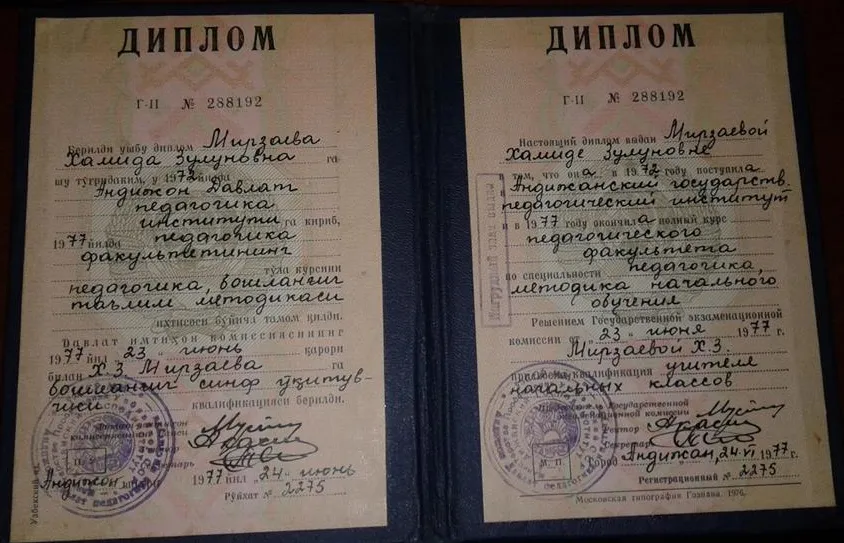 ДИПЛОМ
Г-II № 288192
Берилди ушбу диплом Мирзаева
Хамида Зулуновна га
шу тўғридаким, у 1972 йилда
Андижон Давлат
педагогика
институти га кириб,
1977 йилда педагогика
факультетининг
тўла курсини
педагогика, бошланғич
таълим методикаси
ихтисоси бўйича тамом қилди.
Давлат имтиҳон комиссиясининг
1977 йил „23„ июнь қарори
билан Х.З. Мирзаева га
бошланғич синф ўқитув-
чиси квалификацияси берилди.
М.
Андижон
1977 йил „24„ июнь
Рўйхат № 2275
ДИПЛОМ
Г-II № 288192
Настоящий диплом выдан Мирзаевой
Хамиде Зулуновне
в том, что она в 1972 году поступила в
Андижанский государств.
педагогический институт
и в 1977 году окончила полный курс
педагогического
факультета
по специальности педагогика,
методика начального
обучения
Решением Государственной экзаменационной
комиссии от „23„ июня 1977 г.
Мирзаевой Х.З.
присвоена квалификация учителя
начальных классов
Председатель Государственной
экзаменационной комиссии
Ректор
Секретарь
М. П.
Город Андижан, 24.VI 1977 г.
Регистрационный № 2275
Московская типография Гознака. 1976.
Нагрудный знак выдан